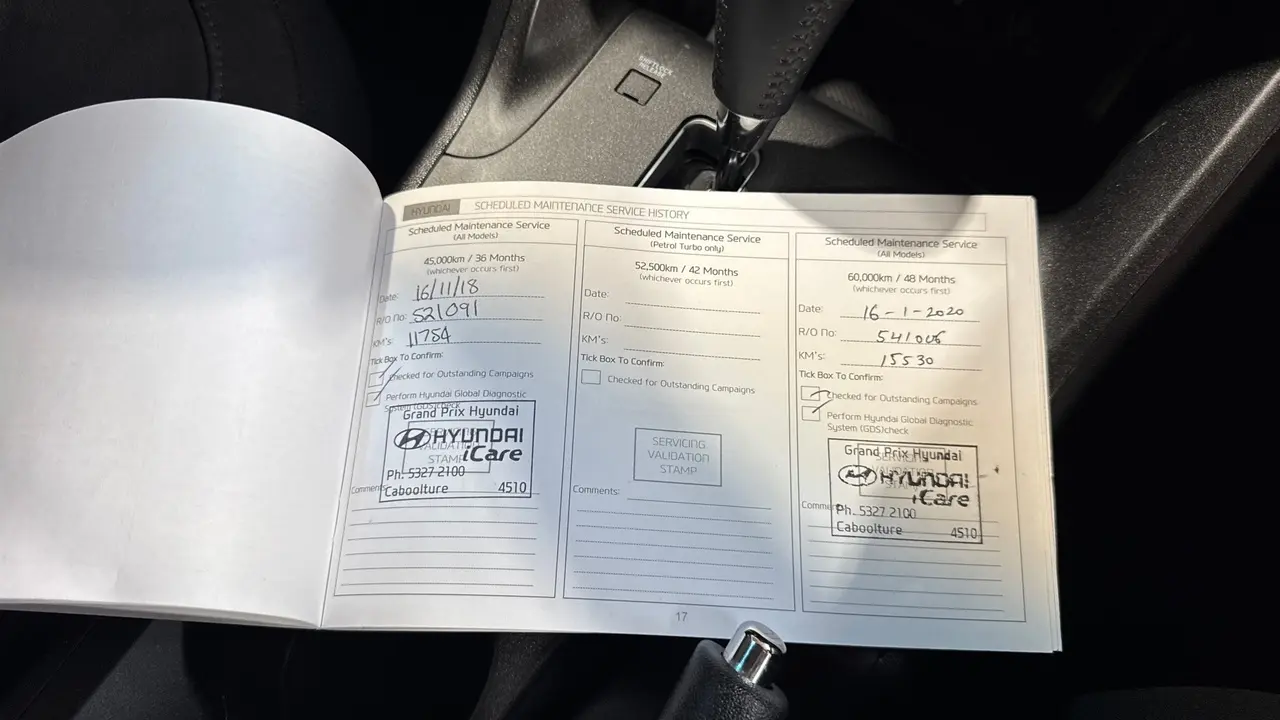 SHIFTLOCK
RELEASE
HYUNDAI
SCHEDULED MAINTENANCE SERVICE HISTORY
Scheduled Maintenance Service
(All Models)
45,000km / 36 Months
(whichever occurs first)
Date: 16/11/18
R/O No: 521091
KM's: 11754
Tick Box To Confirm:
Checked for Outstanding Campaigns
Perform Hyundai Global Diagnostic
System (GDS)check
Grand Prix Hyundai
HYUNDAI
iCare
Ph: 5327 2100
Caboolture 4510
VALIDATION
STAMP
Comments:
Scheduled Maintenance Service
(Petrol Turbo only)
52,500km / 42 Months
(whichever occurs first)
Date:
R/O No:
KM's:
Tick Box To Confirm:
Checked for Outstanding Campaigns
SERVICING
VALIDATION
STAMP
Comments:
Scheduled Maintenance Service
(All Models)
60,000km / 48 Months
(whichever occurs first)
Date: 16-1-2020
R/O No: 541006
KM's: 15530
Tick Box To Confirm:
Checked for Outstanding Campaigns
Perform Hyundai Global Diagnostic
System (GDS)check
Grand Prix Hyundai
HYUNDAI
iCare
Ph. 5327 2100
Caboolture 4510
17